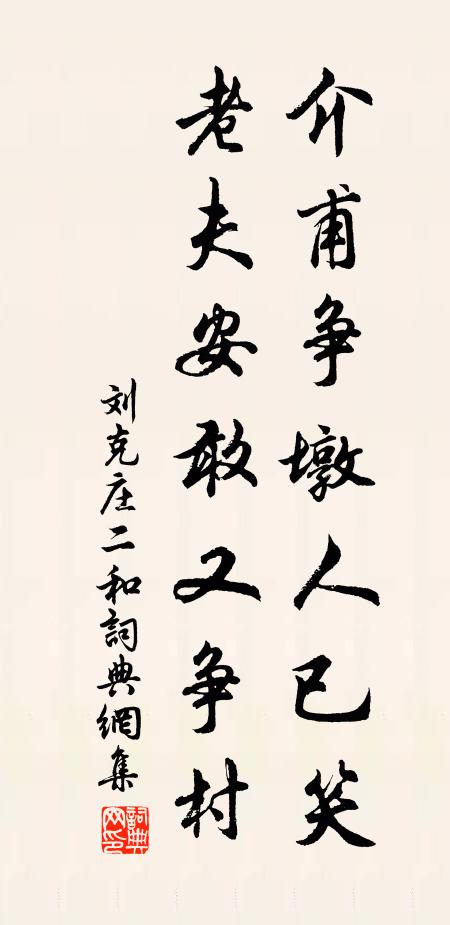 介甫争墩人已笑
老夫安敢又争村
刘克庄二和詞典網集
詞典網印